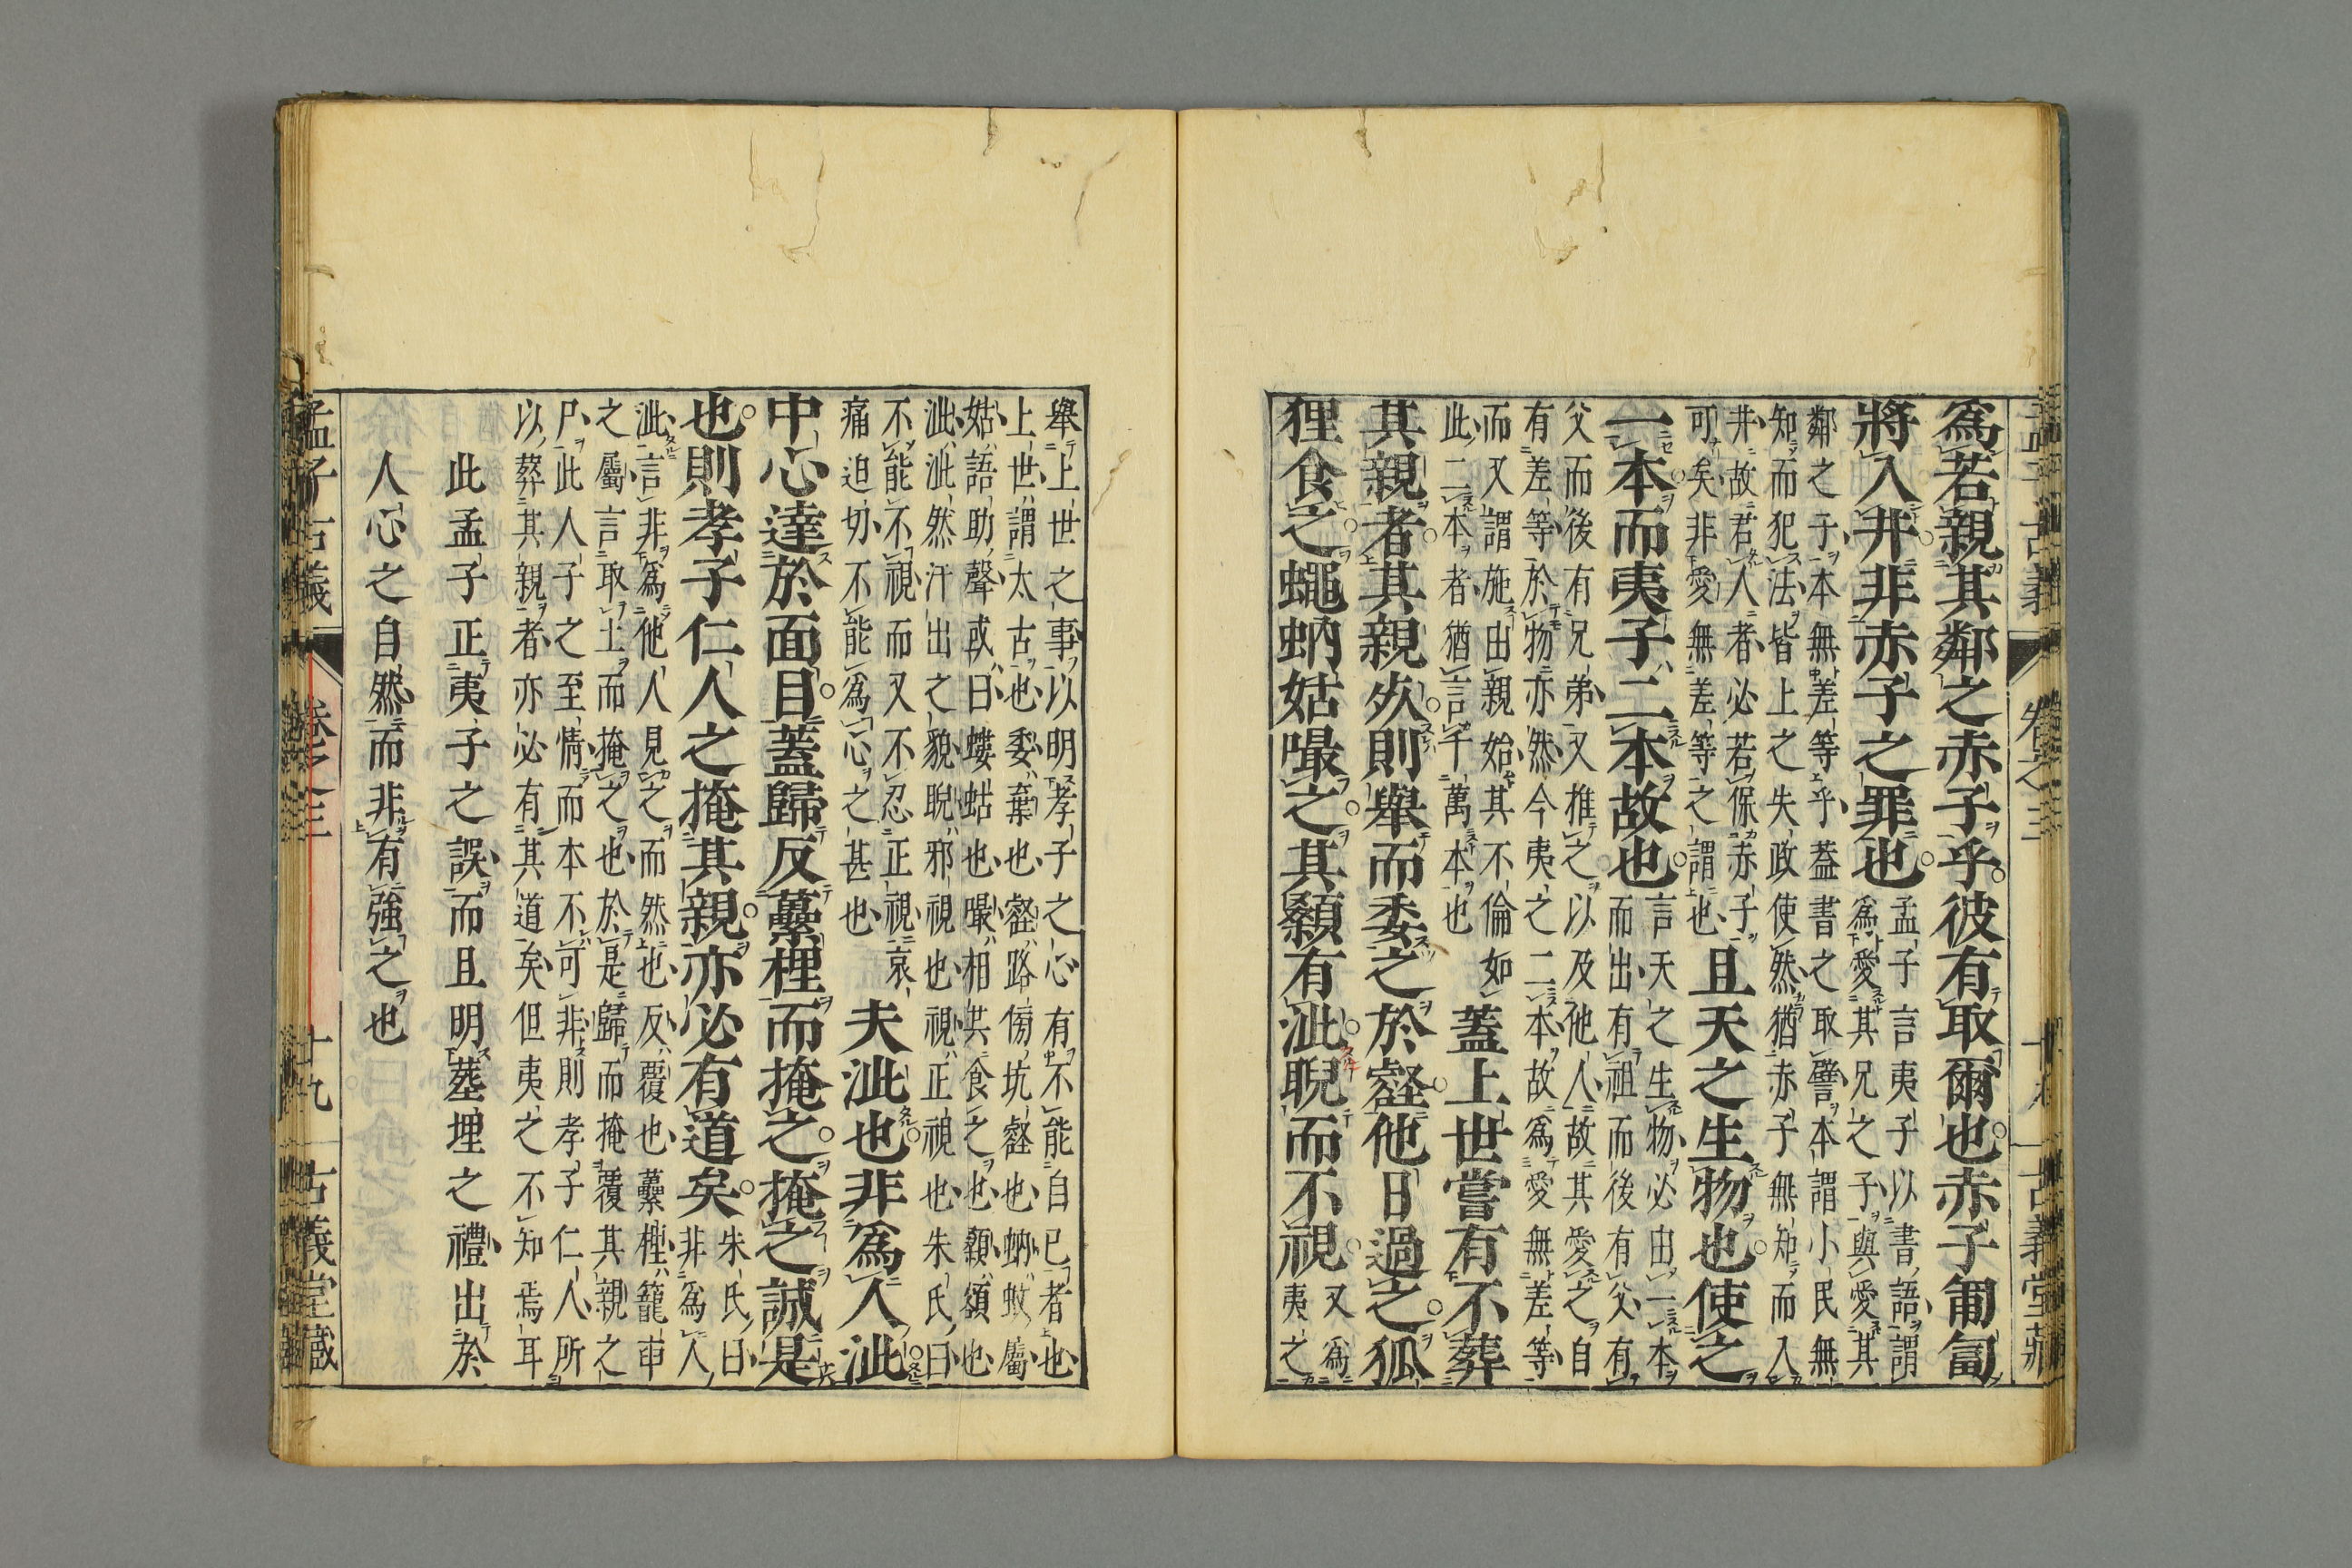 爲若親其鄰之赤子乎彼有取爾也赤子匍匐
將入井非赤子之罪也
孟子言夷子以書語謂
爲愛其兄之子與愛其
鄰之子本無差等乎蓋書之取譬本謂小民無
知而犯法皆上之失政使然猶赤子無知而入
井故君人者必若保赤子
可矣非愛無差等之謂也
且天之生物也使之
一本而夷子二本故也
言天之生物必由一本
而出有祖而後有父有
父而後有兄弟又推之以及他人故其愛之自
有差等於物亦然今夷之二本故爲愛無差等
而又謂施由親始其不倫如
此二本者猶言千萬本也
蓋上世嘗有不葬
其親者其親死則擧而委之於壑他日過之狐
狸食之蠅蚋姑嘬之其顙有泚睨而不視
又爲
夷之
擧上世之事以明孝子之心有不能自已者也
上世謂太古也委棄也壑路傍坑壑也蚋蚊屬
姑語助聲或曰螻蛄也嘬相共食之也顙額也
泚泚然汗出之貌睨邪視也視正視也朱氏曰
不能不視而又不忍正視哀
痛迫切不能爲心之甚也
夫泚也非爲人泚
中心達於面目蓋歸反虆梩而掩之掩之誠是
也則孝子仁人之掩其親亦必有道矣
朱氏曰
非爲人
泚言非爲他人見之而然也反覆也虆梩籠臿
之屬言取土而掩之也於是歸而掩覆其親之
尸此人子之至情而本不可非則孝子仁人所
以葬其親者亦必有其道矣但夷之不知焉耳
此孟子正夷子之誤而且明葬埋之禮出於
人心之自然而非有強之也
孟子古義 卷之三 十九 古義堂藏